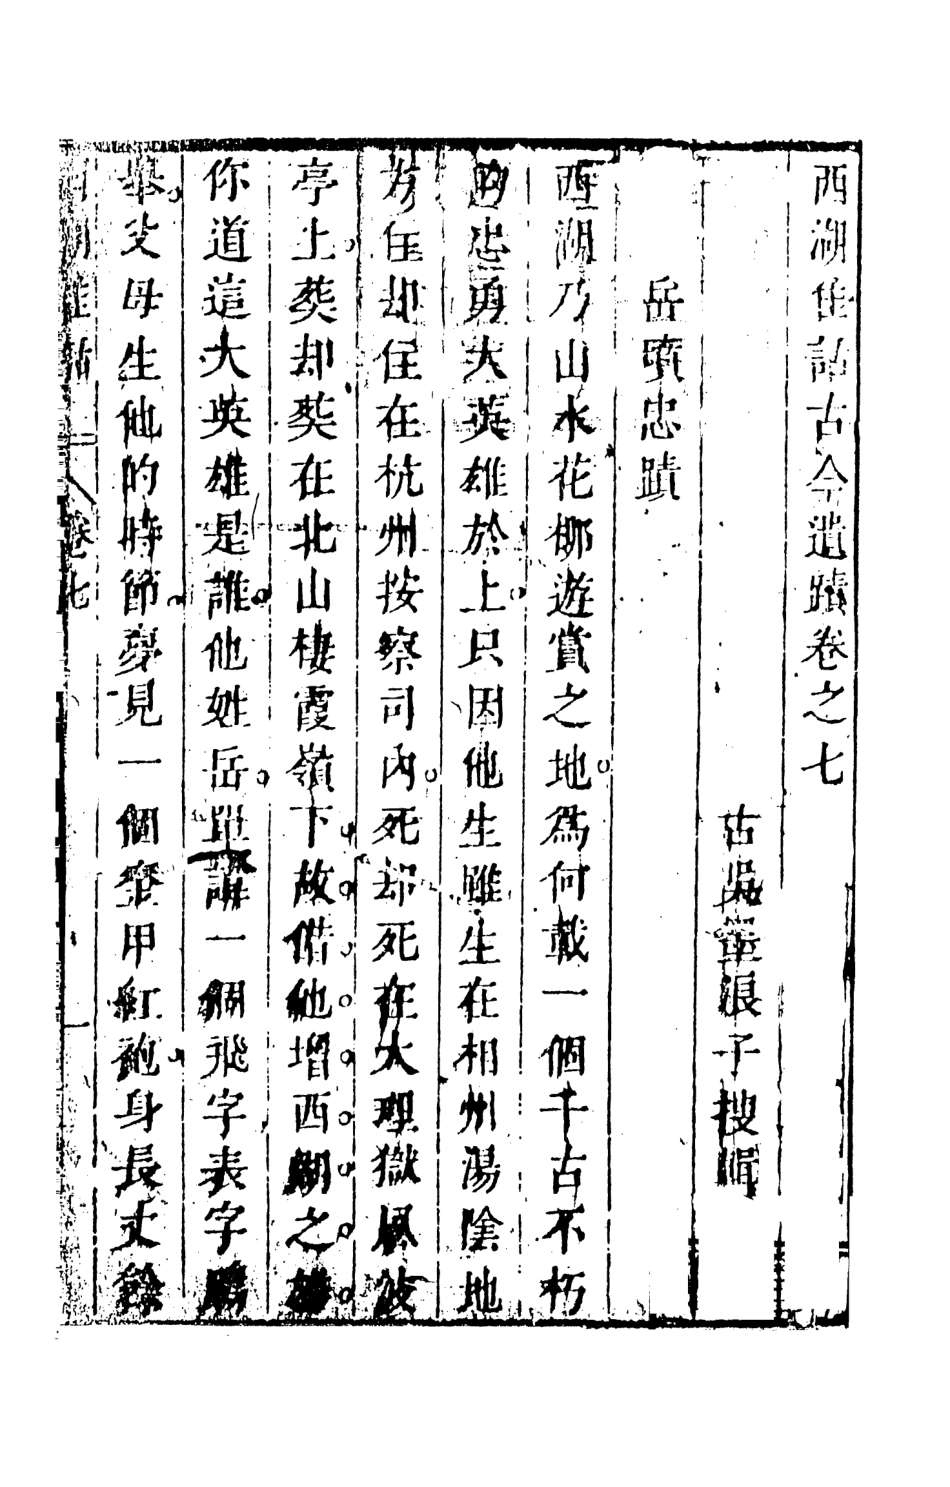 西湖佳話古今遺蹟卷之七
古吳墨浪子搜輯
岳墳忠蹟
西湖乃山水花柳遊賞之地爲何載一個千古不朽
的忠勇大英雄於上只因他生雖生在相州湯陰地
方住却住在杭州按察司內死却死在大理獄風波
亭上葬却葬在北山棲霞嶺下故借他增西湖之雄
你道這大英雄是誰他姓岳單諱一個飛字表字鵬
舉父母生他的時節夢見一個金甲紅袍身長丈餘
西湖佳話 卷七 一